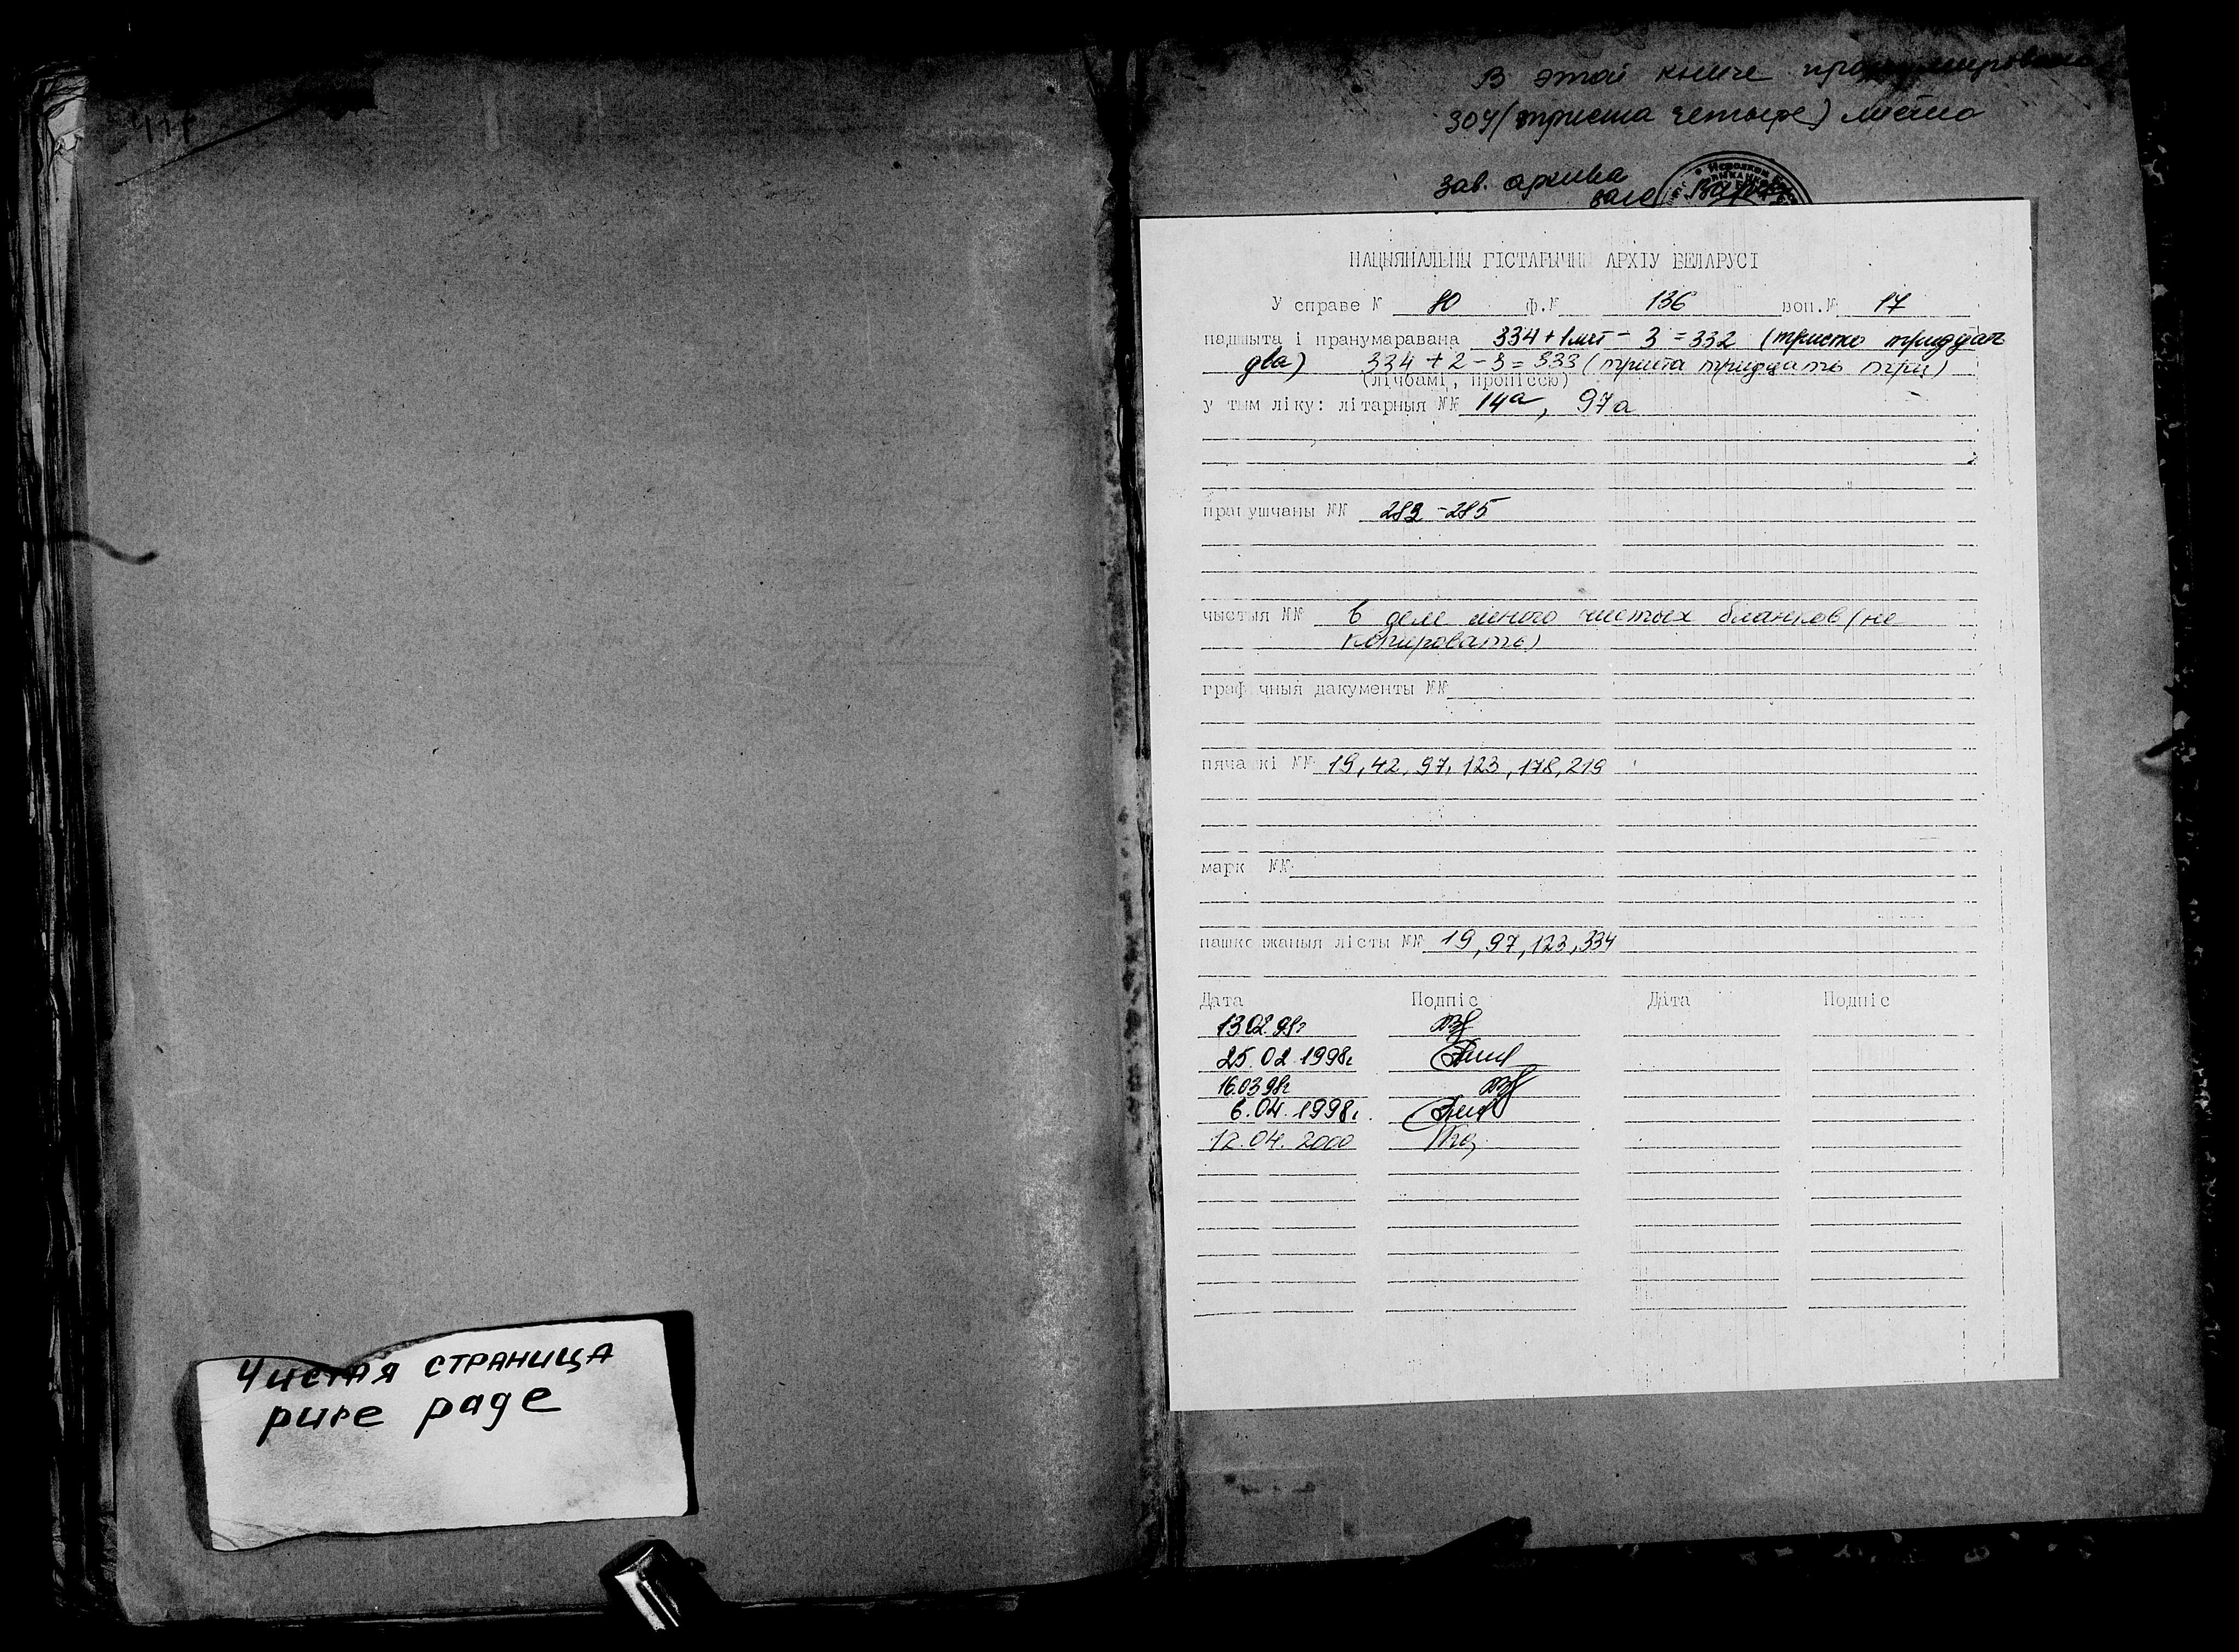 В этой книге пронумеровано
304 (триста четыре) листа
Зав. архива
НАЦЫЯНАЛЬНЫ ГІСТАРЫЧНЫ АРХІЎ БЕЛАРУСІ
У справе № 80 ф.№ 136 воп.№ 17
падшыта і пранумаравана 334 + 1 лит - 3 = 332 (тристо тридцать
два) 334 + 2 - 3 = 333 (триста тридцать три)
(лічбамі, пропіссю)
у тым ліку: літарныя №№ 14а, 97а
прапушчаны №№ 283-285
чыстыя №№ в деле много чистых бланков (не
копировать)
графічныя дакументы №№
пячаткі №№ 19, 42, 97, 123, 178, 219
маркі №№
пашкоджаныя лісты №№ 19, 97, 123, 334
Дата Подпіс Дата Подпіс
13.02.98г
25.02.1998г
16.03.98г
6.04.1998г.
12.04.2000
Чистая страница
pure page